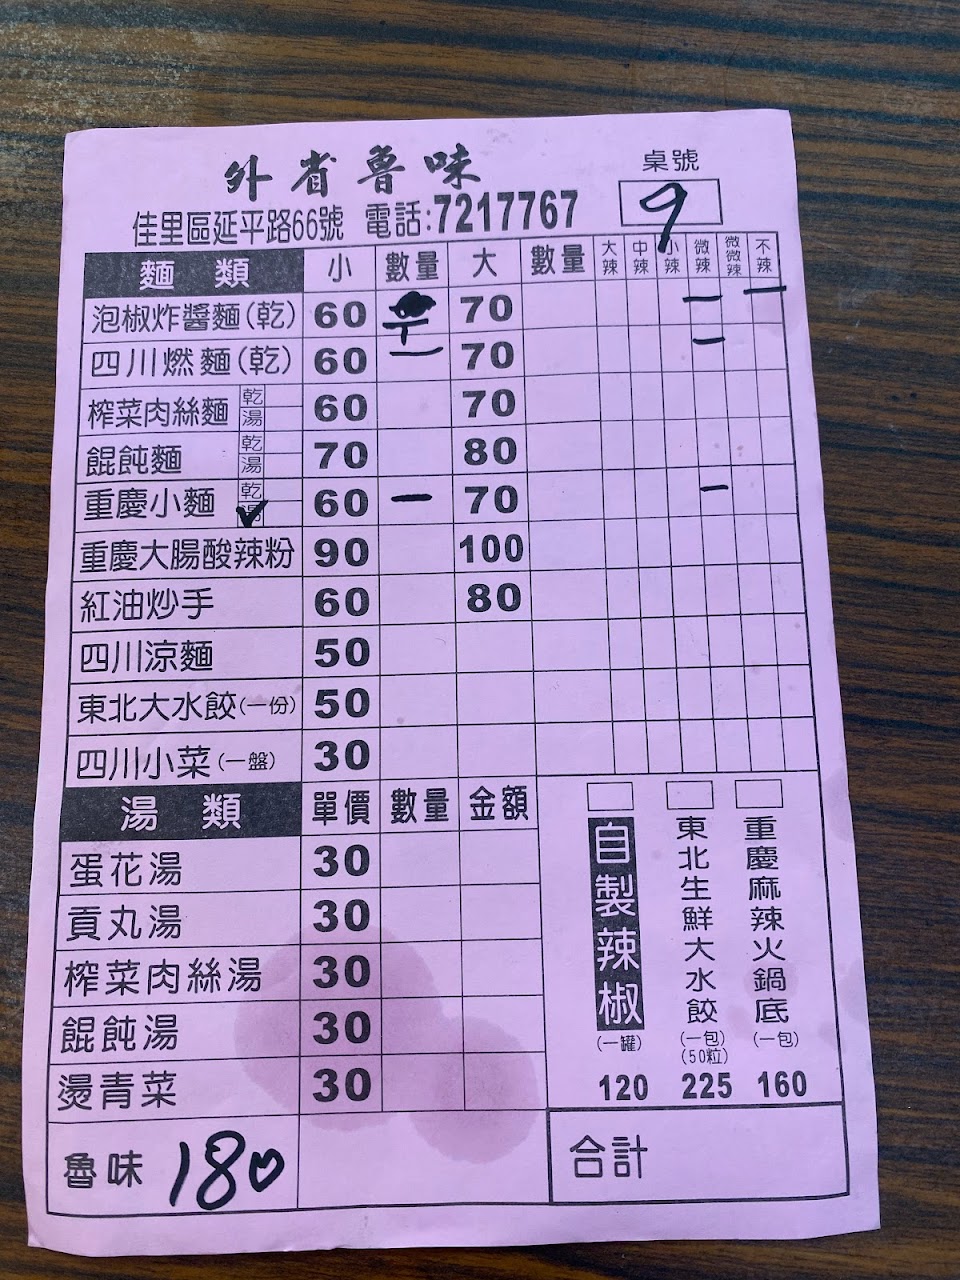 外省魯味
桌號
9
佳里區延平路66號 電話:7217767
麵類 小 數量 大 數量 大辣 中辣 小辣 微辣 微微辣 不辣
泡椒炸醬麵(乾) 60 丅 70 一 一
四川燃麵(乾) 60 一 70 一
榨菜肉絲麵 乾 湯 60 70
餛飩麵 乾 湯 70 80
重慶小麵 乾 湯 ✓ 60 一 70 一
重慶大腸酸辣粉 90 100
紅油炒手 60 80
四川涼麵 50
東北大水餃(一份) 50
四川小菜(一盤) 30
湯類 單價 數量 金額
蛋花湯 30
貢丸湯 30
榨菜肉絲湯 30
餛飩湯 30
燙青菜 30
自製辣椒(一罐) 120
東北生鮮大水餃(一包)(50粒) 225
重慶麻辣火鍋底(一包) 160
魯味 180
合計